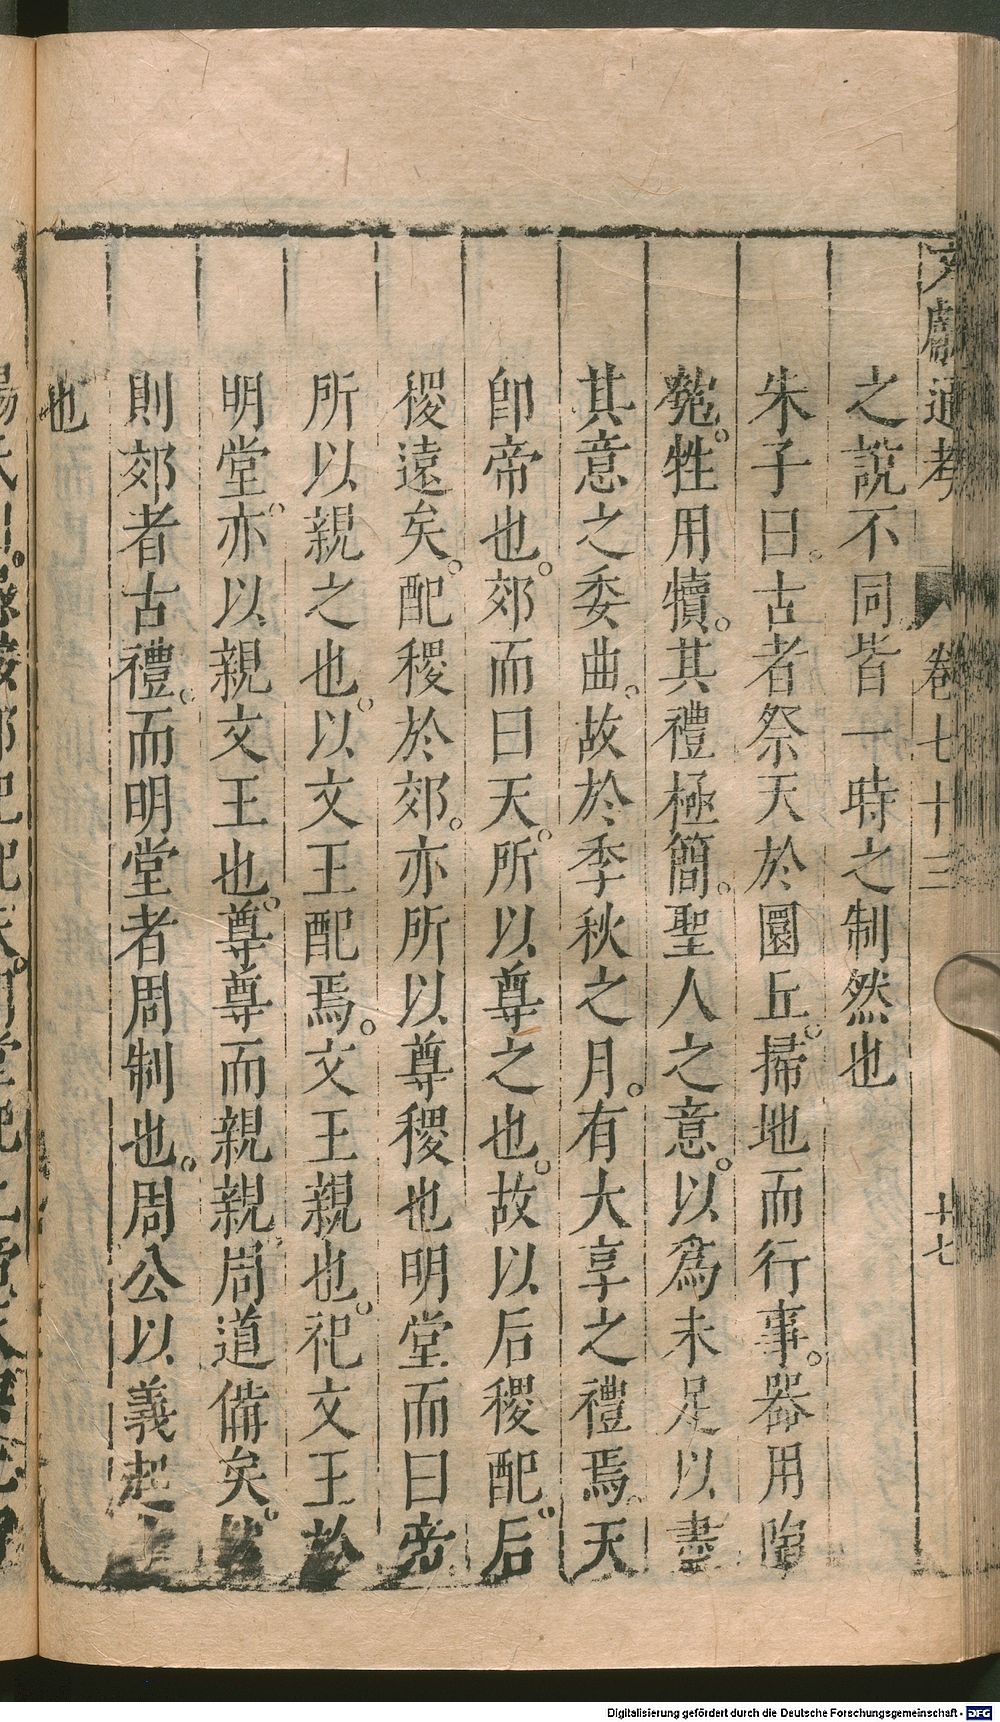 文獻通考 卷七十三 廿七
之說不同皆一時之制然也
朱子曰。古者祭天於圜丘。掃地而行事。器用陶
匏。牲用犢。其禮極簡。聖人之意。以爲未足以盡
其意之委曲。故於季秋之月。有大享之禮焉。天
卽帝也。郊而曰天。所以尊之也。故以后稷配。后
稷遠矣。配稷於郊。亦所以尊稷也明堂而曰帝
所以親之也。以文王配焉。文王親也。祀文王於
明堂。亦以親文王也。尊尊而親親。周道備矣。然
則郊者古禮。而明堂者周制也。周公以義起之
也
Digitalisierung gefördert durch die Deutsche Forschungsgemeinschaft - DFG